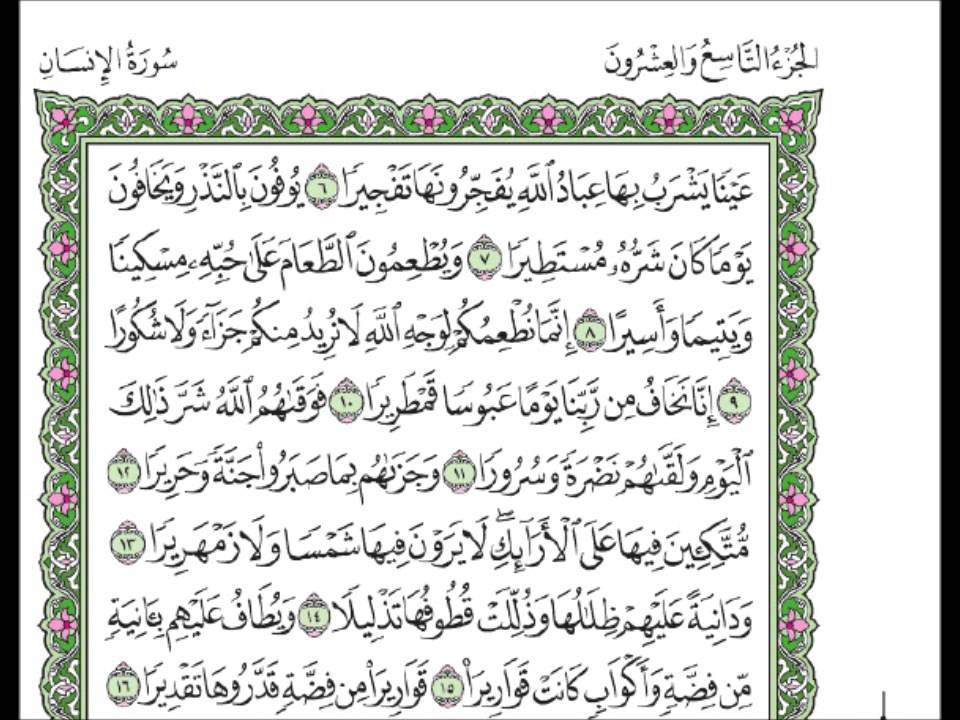 الجُزْءُ التَّاسِعُ وَالعِشْرُونَ
سُورَةُ الإِنسَانِ
عَيْنًا يَشْرَبُ بِهَا عِبَادُ ٱللَّهِ يُفَجِّرُونَهَا تَفْجِيرًا ٦ يُوفُونَ بِٱلنَّذْرِ وَيَخَافُونَ
يَوْمًا كَانَ شَرُّهُۥ مُسْتَطِيرًا ٧ وَيُطْعِمُونَ ٱلطَّعَامَ عَلَىٰ حُبِّهِۦ مِسْكِينًا
وَيَتِيمًا وَأَسِيرًا ٨ إِنَّمَا نُطْعِمُكُمْ لِوَجْهِ ٱللَّهِ لَا نُرِيدُ مِنكُمْ جَزَآءً وَلَا شُكُورًا
٩ إِنَّا نَخَافُ مِن رَّبِّنَا يَوْمًا عَبُوسًا قَمْطَرِيرًا ١٠ فَوَقَىٰهُمُ ٱللَّهُ شَرَّ ذَٰلِكَ
ٱلْيَوْمِ وَلَقَّىٰهُمْ نَضْرَةً وَسُرُورًا ١١ وَجَزَىٰهُم بِمَا صَبَرُوا۟ جَنَّةً وَحَرِيرًا ١٢
مُّتَّكِـِٔينَ فِيهَا عَلَى ٱلْأَرَآئِكِ ۖ لَا يَرَوْنَ فِيهَا شَمْسًا وَلَا زَمْهَرِيرًا ١٣
وَدَانِيَةً عَلَيْهِمْ ظِلَٰلُهَا وَذُلِّلَتْ قُطُوفُهَا تَذْلِيلًا ١٤ وَيُطَافُ عَلَيْهِم بِـَٔانِيَةٍ
مِّن فِضَّةٍ وَأَكْوَابٍ كَانَتْ قَوَارِيرَا۠ ١٥ قَوَارِيرَا۟ مِن فِضَّةٍ قَدَّرُوهَا تَقْدِيرًا ١٦